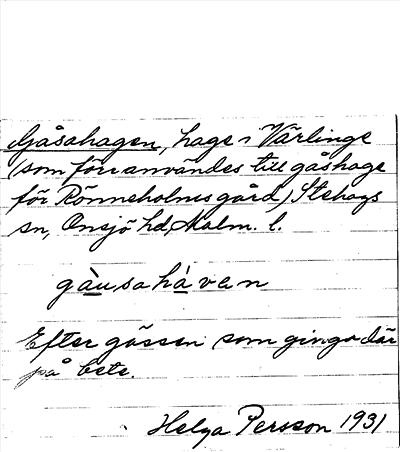 Gåsahagen, hage i Värlinge
(som förr användes till gåshage
för Rönneholms gård) Stehags
sn, Onsjö hd, Malm. l.
gàusahávan
Efter gässen som gingo där
på bete.
Helga Persson 1931